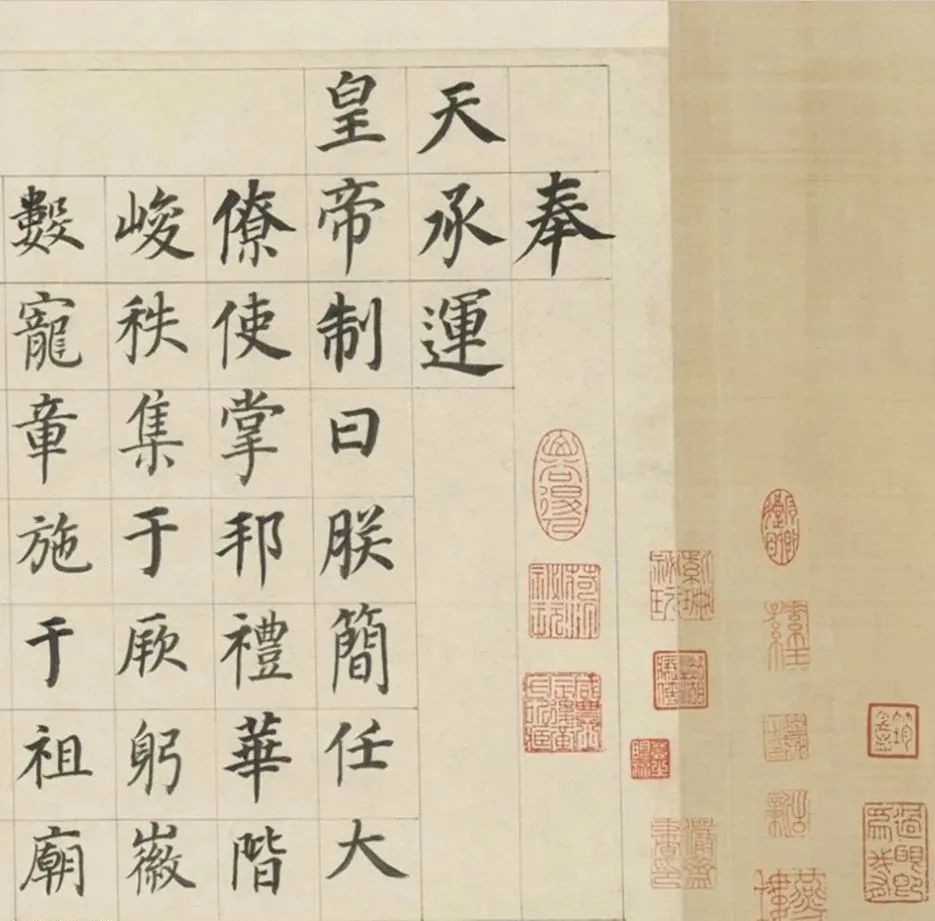 奉
天承運
皇帝制曰朕簡任大
僚使掌邦禮華階
峻秩集于厥躬徽
數寵章施于祖廟